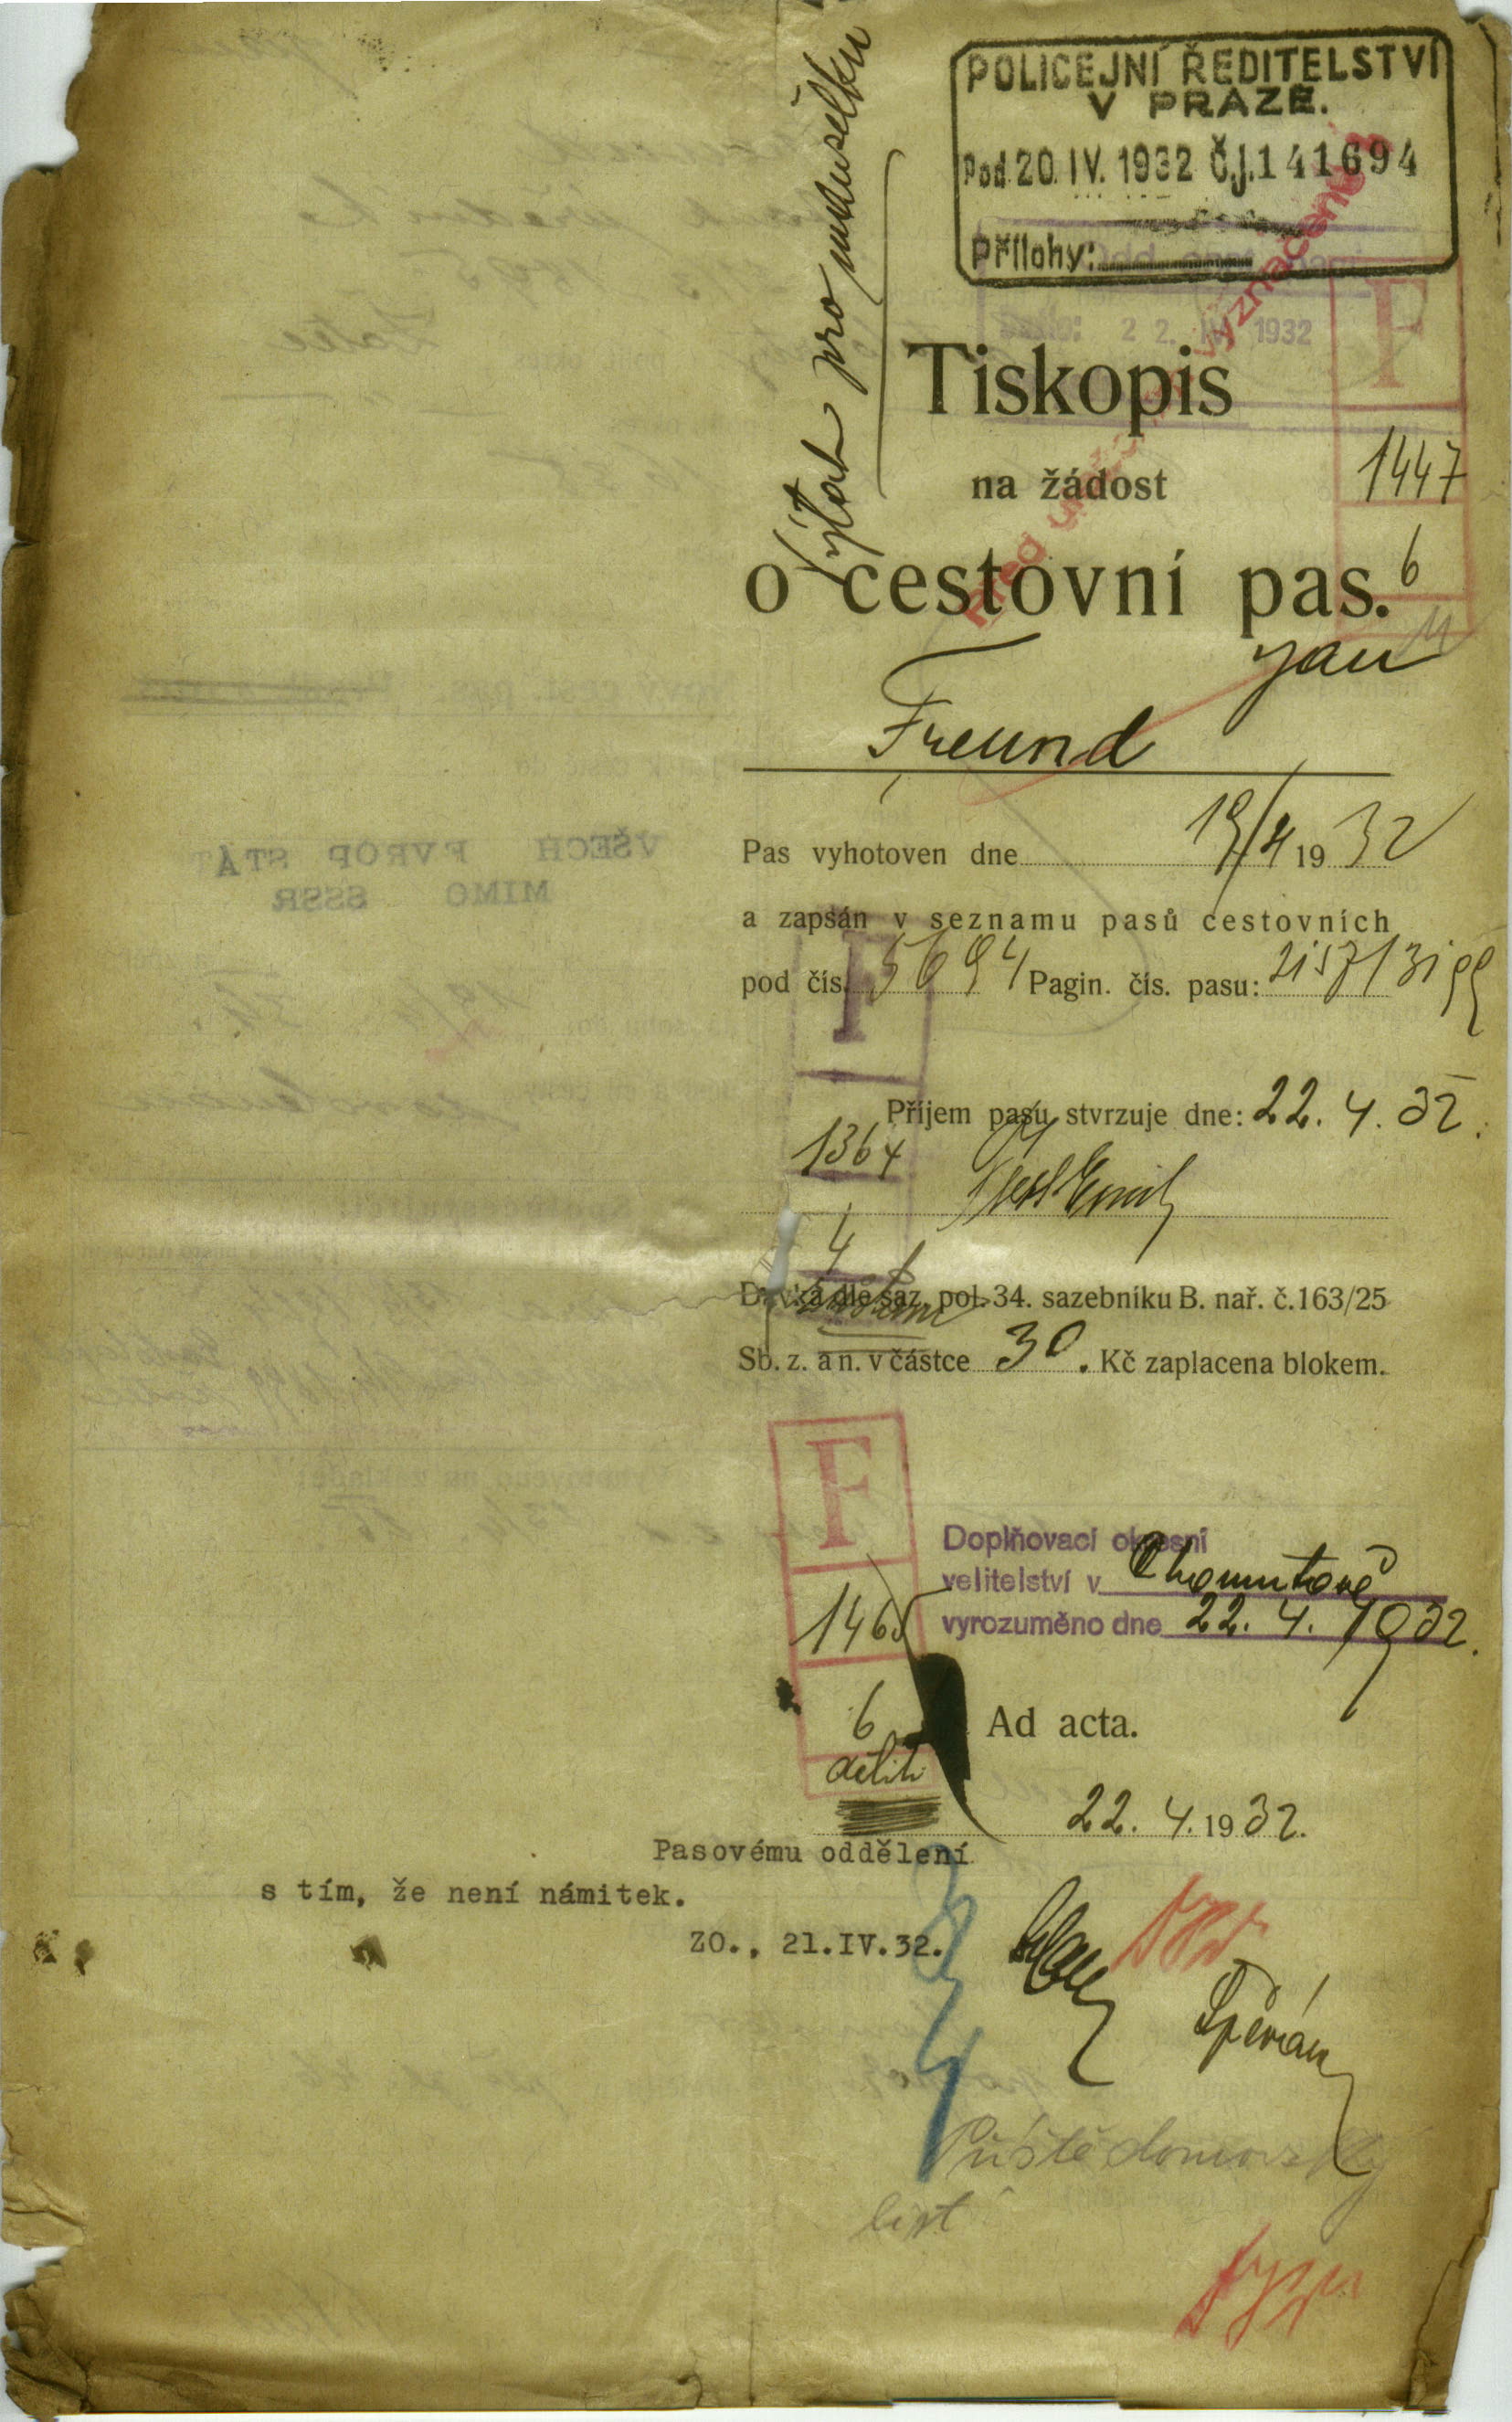 POLICEJNÍ ŘEDITELSTVÍ
V PRAZE.
Pod. 20. IV. 1932 Č.j. 141694
Přílohy:
22. IV. 1932
F
Výtah pro manželku
Tiskopis
na žádost
1447
o cestovní pas.
6
Jan
Freund
Pas vyhotoven dne 19/4 1932
a zapsán v seznamu pasů cestovních
pod čís. 5694 Pagin. čís. pasu:
F
Příjem pasu stvrzuje dne: 22. 4. 32.
1364
4
Dávka dle saz. pol. 34. sazebníku B. nař. č. 163/25
Sb. z. a n. v částce 30. Kč zaplacena blokem.
F
Doplňovací okresní
velitelství v Chomutově
vyrozuměno dne 22. 4. 1932.
1465
6
Ad acta.
22. 4. 1932.
Pasovému oddělení
s tím, že není námitek.
ZO., 21.IV.32.
Příště domovský
list